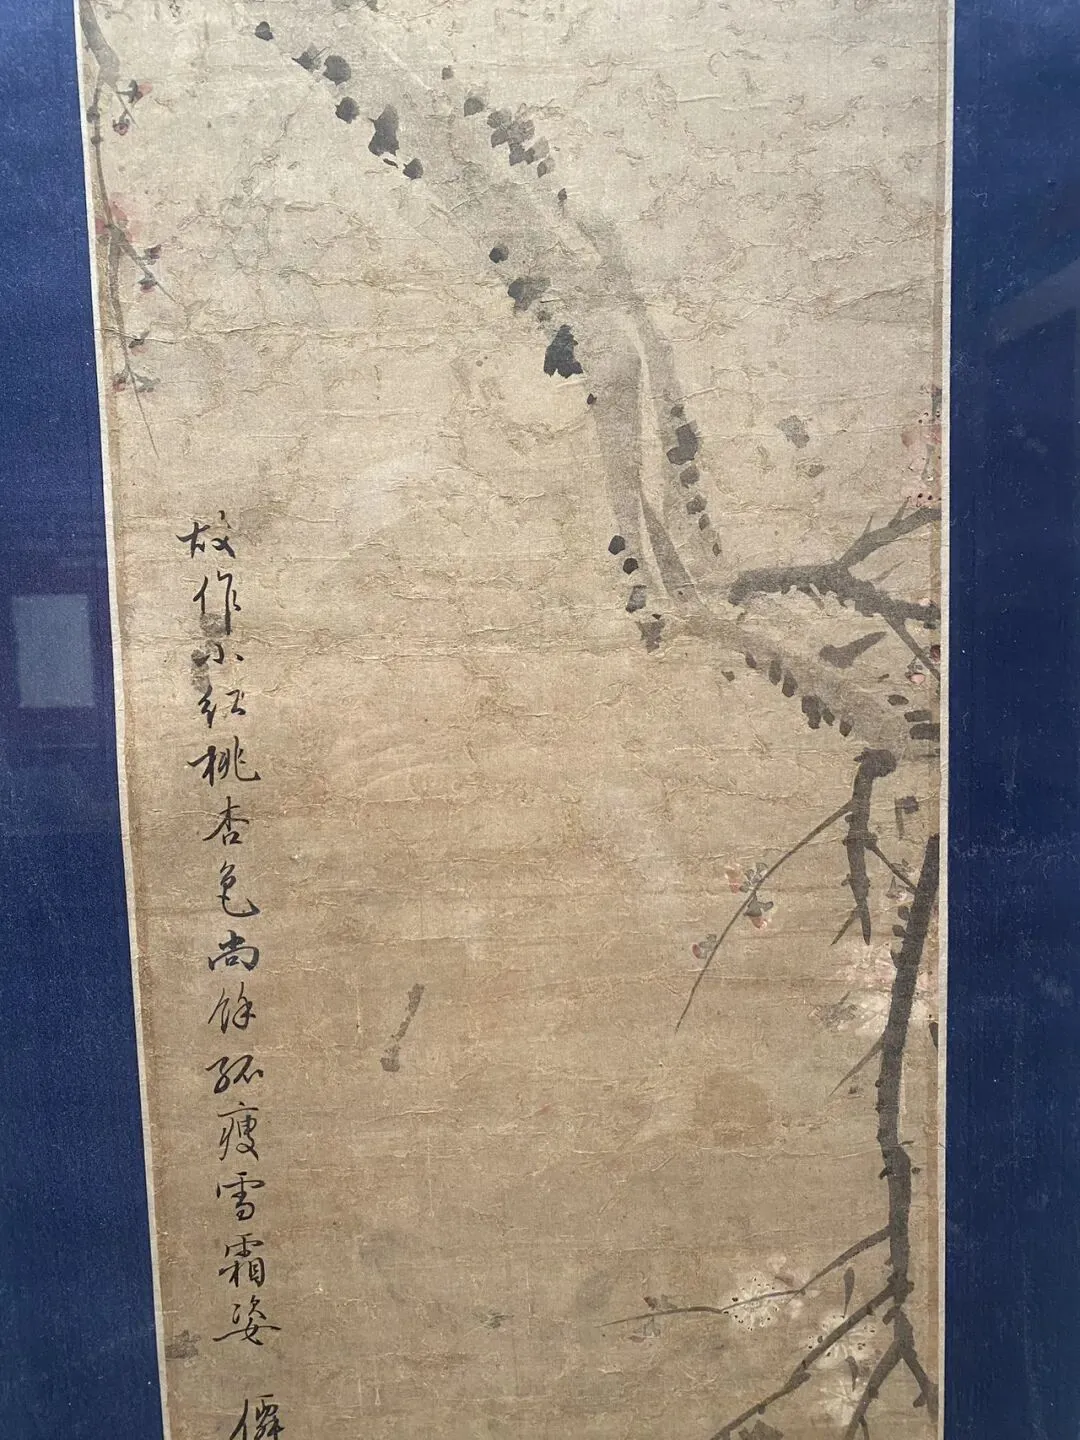 故作小红桃杏色尚馀孤瘦雪霜姿